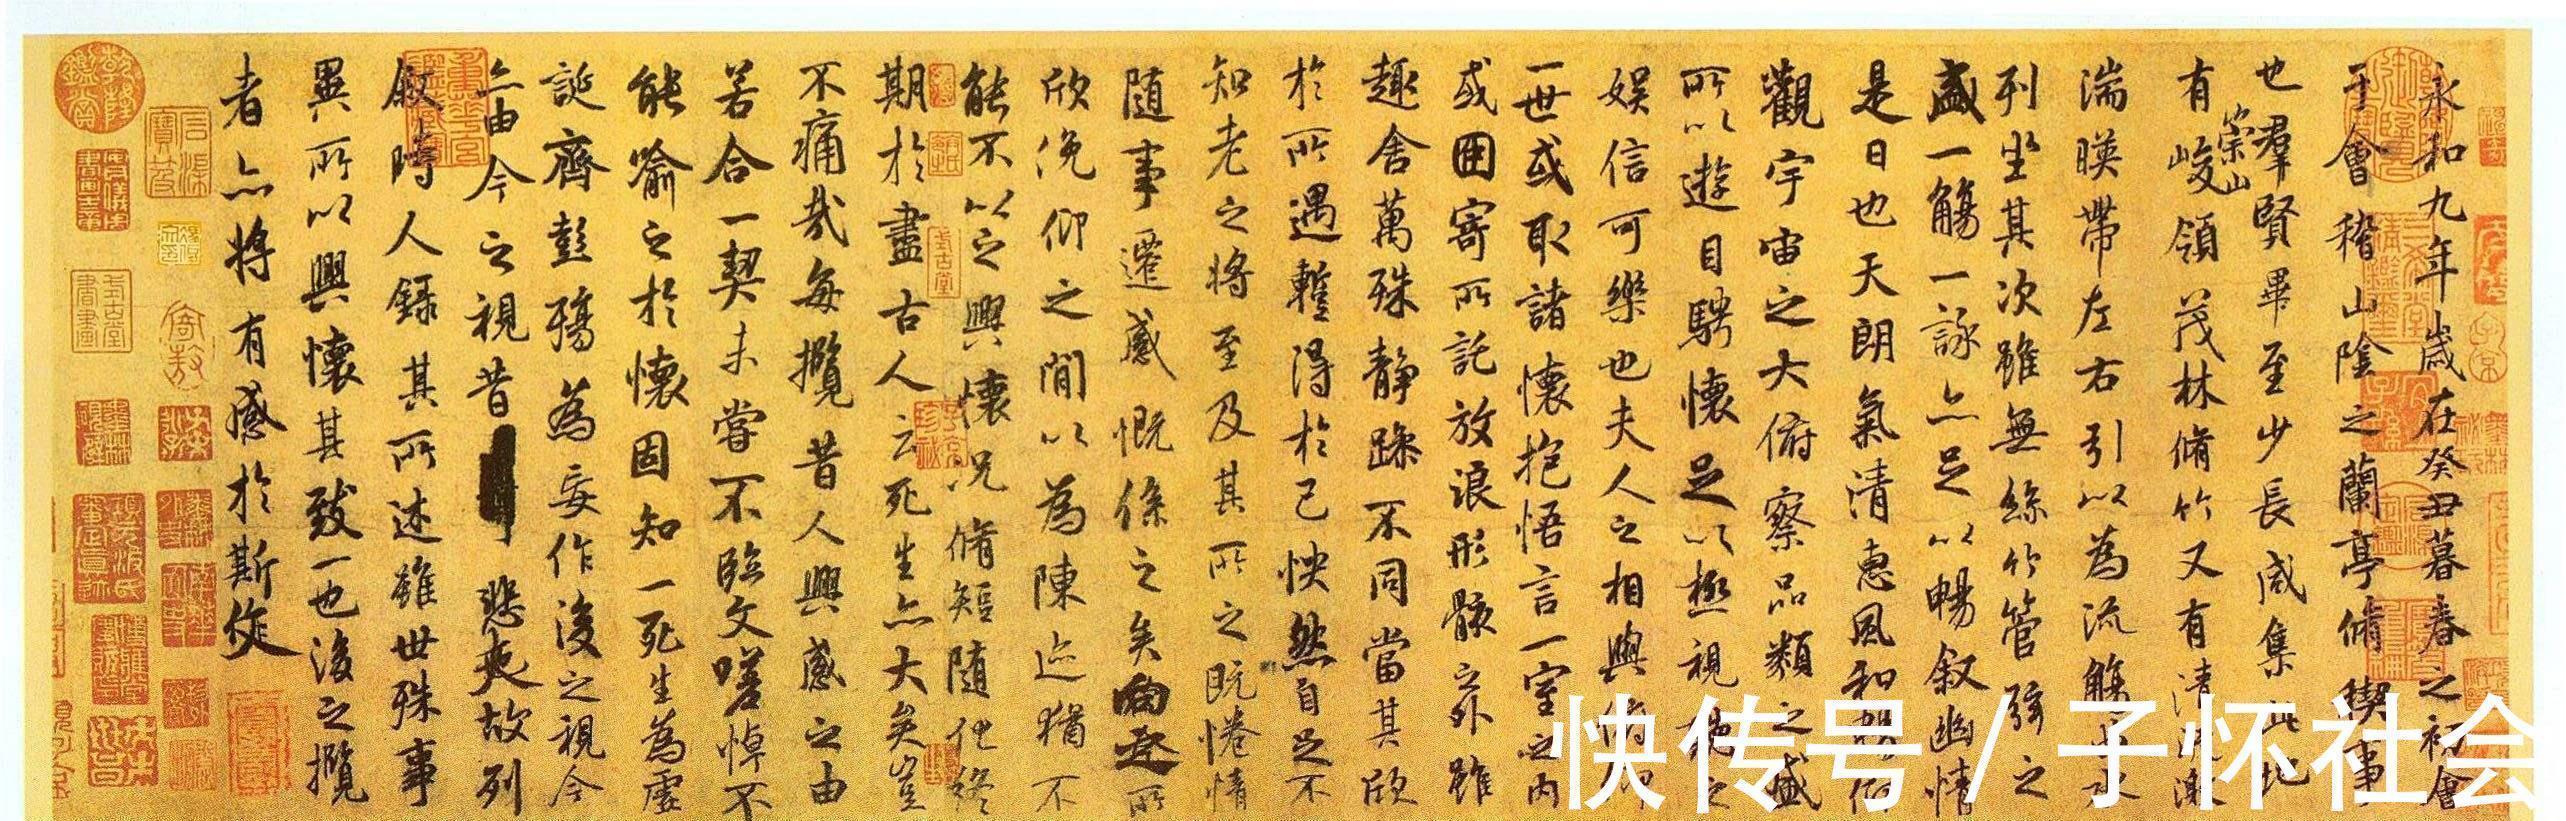 永和九年歲在癸丑暮春之初會
于會稽山陰之蘭亭脩稧事
也羣賢畢至少長咸集此地
有崇山峻領茂林脩竹又有清流激
湍暎帶左右引以為流觴曲水
列坐其次雖無絲竹管弦之
盛一觴一詠亦足以暢敘幽情
是日也天朗氣清惠風和暢仰
觀宇宙之大俯察品類之盛
所以遊目騁懷足以極視聽之
娛信可樂也夫人之相與俯仰
一世或取諸懷抱悟言一室之內
或因寄所託放浪形骸之外雖
趣舍萬殊靜躁不同當其欣
於所遇暫得於己怏然自足不
知老之將至及其所之既惓情
隨事遷感慨係之矣向之所
欣俛仰之閒以為陳迹猶不
能不以之興懷況脩短隨化終
期於盡古人云死生亦大矣豈
不痛哉每攬昔人興感之由
若合一契未嘗不臨文嗟悼不
能喻之於懷固知一死生為虛
誕齊彭殤為妄作後之視今
亦由今之視昔悲夫故列
敘時人錄其所述雖世殊事
異所以興懷其致一也後之攬
者亦將有感於斯文
快传号/子怀社会